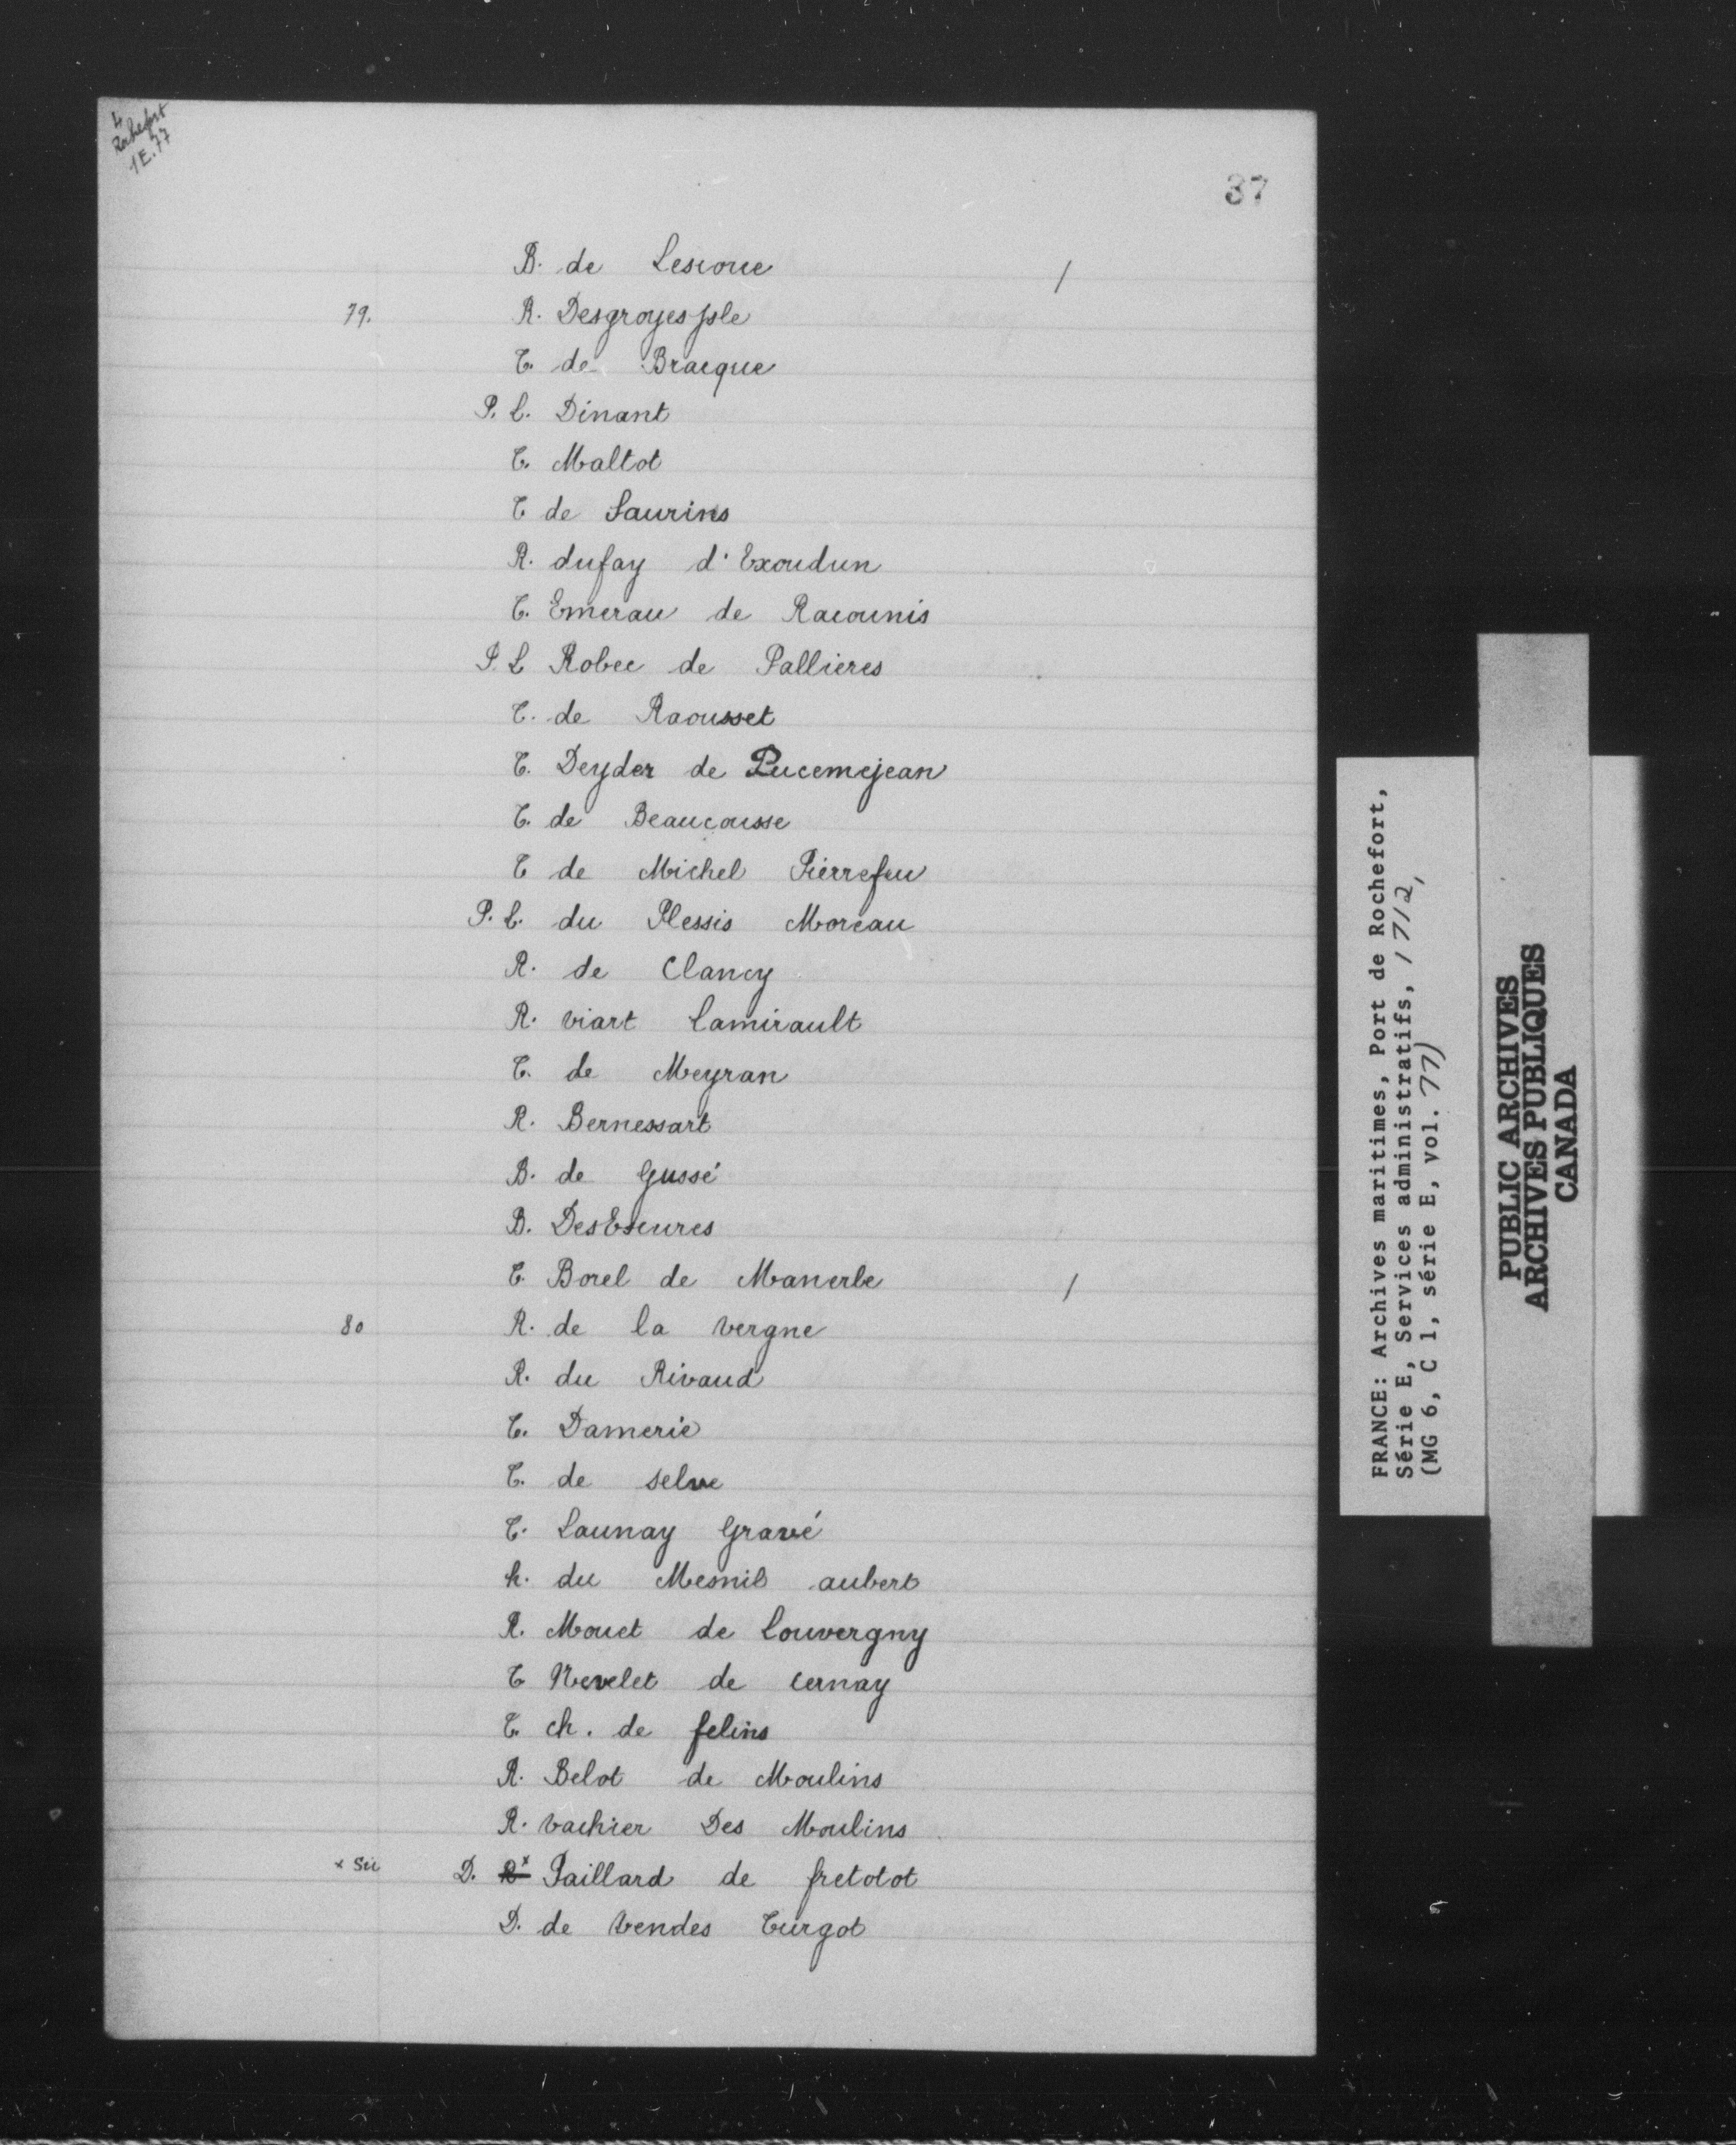 4
Rochefort
1E.77
37
B. de Lescoue /
79. R. Desgroyes Isle
T. de Bracque
P. L. Dinant
T. Maltot
T de Laurins
R. dufay d'Exoudun
T. Emerau de Racounis
P. L Robec de Pallieres
T. de Raousset
T. Deyder de Pucemejean
T. de Beaucousse
T de Michel Pierrefeu
P. L. du Plessis Moreau
R. de Clancy
R. viart Lamirault
T. de Meyran
R. Bernessart
B. de Gussé
B. DesEscures
T. Borel de Manerbe /
80 R. de la vergne
R. du Rivaud
T. Damerie
T. de selve
T. Launay Gravé
h. du Mesnil aubert
R. Mouet de Louvergny
T Nevelet de cernay
T. ch. de felins
R. Belot de Moulins
R. vachier Des Moulins
x sic D. R x Paillard de fretotot
D. de Vendes Turgot
FRANCE: Archives maritimes, Port de Rochefort,
Série E, Services administratifs, 1712,
(MG 6, C 1, série E, vol. 77)
PUBLIC ARCHIVES
ARCHIVES PUBLIQUES
CANADA